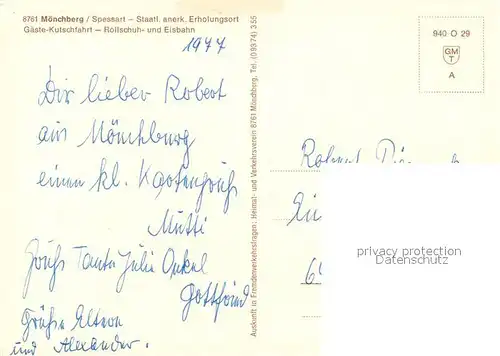 8761 Mönchberg / Spessart – Staatl. anerk. Erholungsort
Gäste-Kutschfahrt – Rollschuh- und Eisbahn
1977
Dir lieber Robert
aus Mönchburg
einen kl. Kartengruß
Mutti
Gruß Tante Julia Onkel
Gottfried
Grüße Eltern
und Alexander.
Auskunft u. Fremdenverkehrsfragen: Heimat- und Verkehrsverein 8761 Mönchberg, Tel. (09374) 355
940 O 29
GM
T
A
Robert
privacy protection
Datenschutz